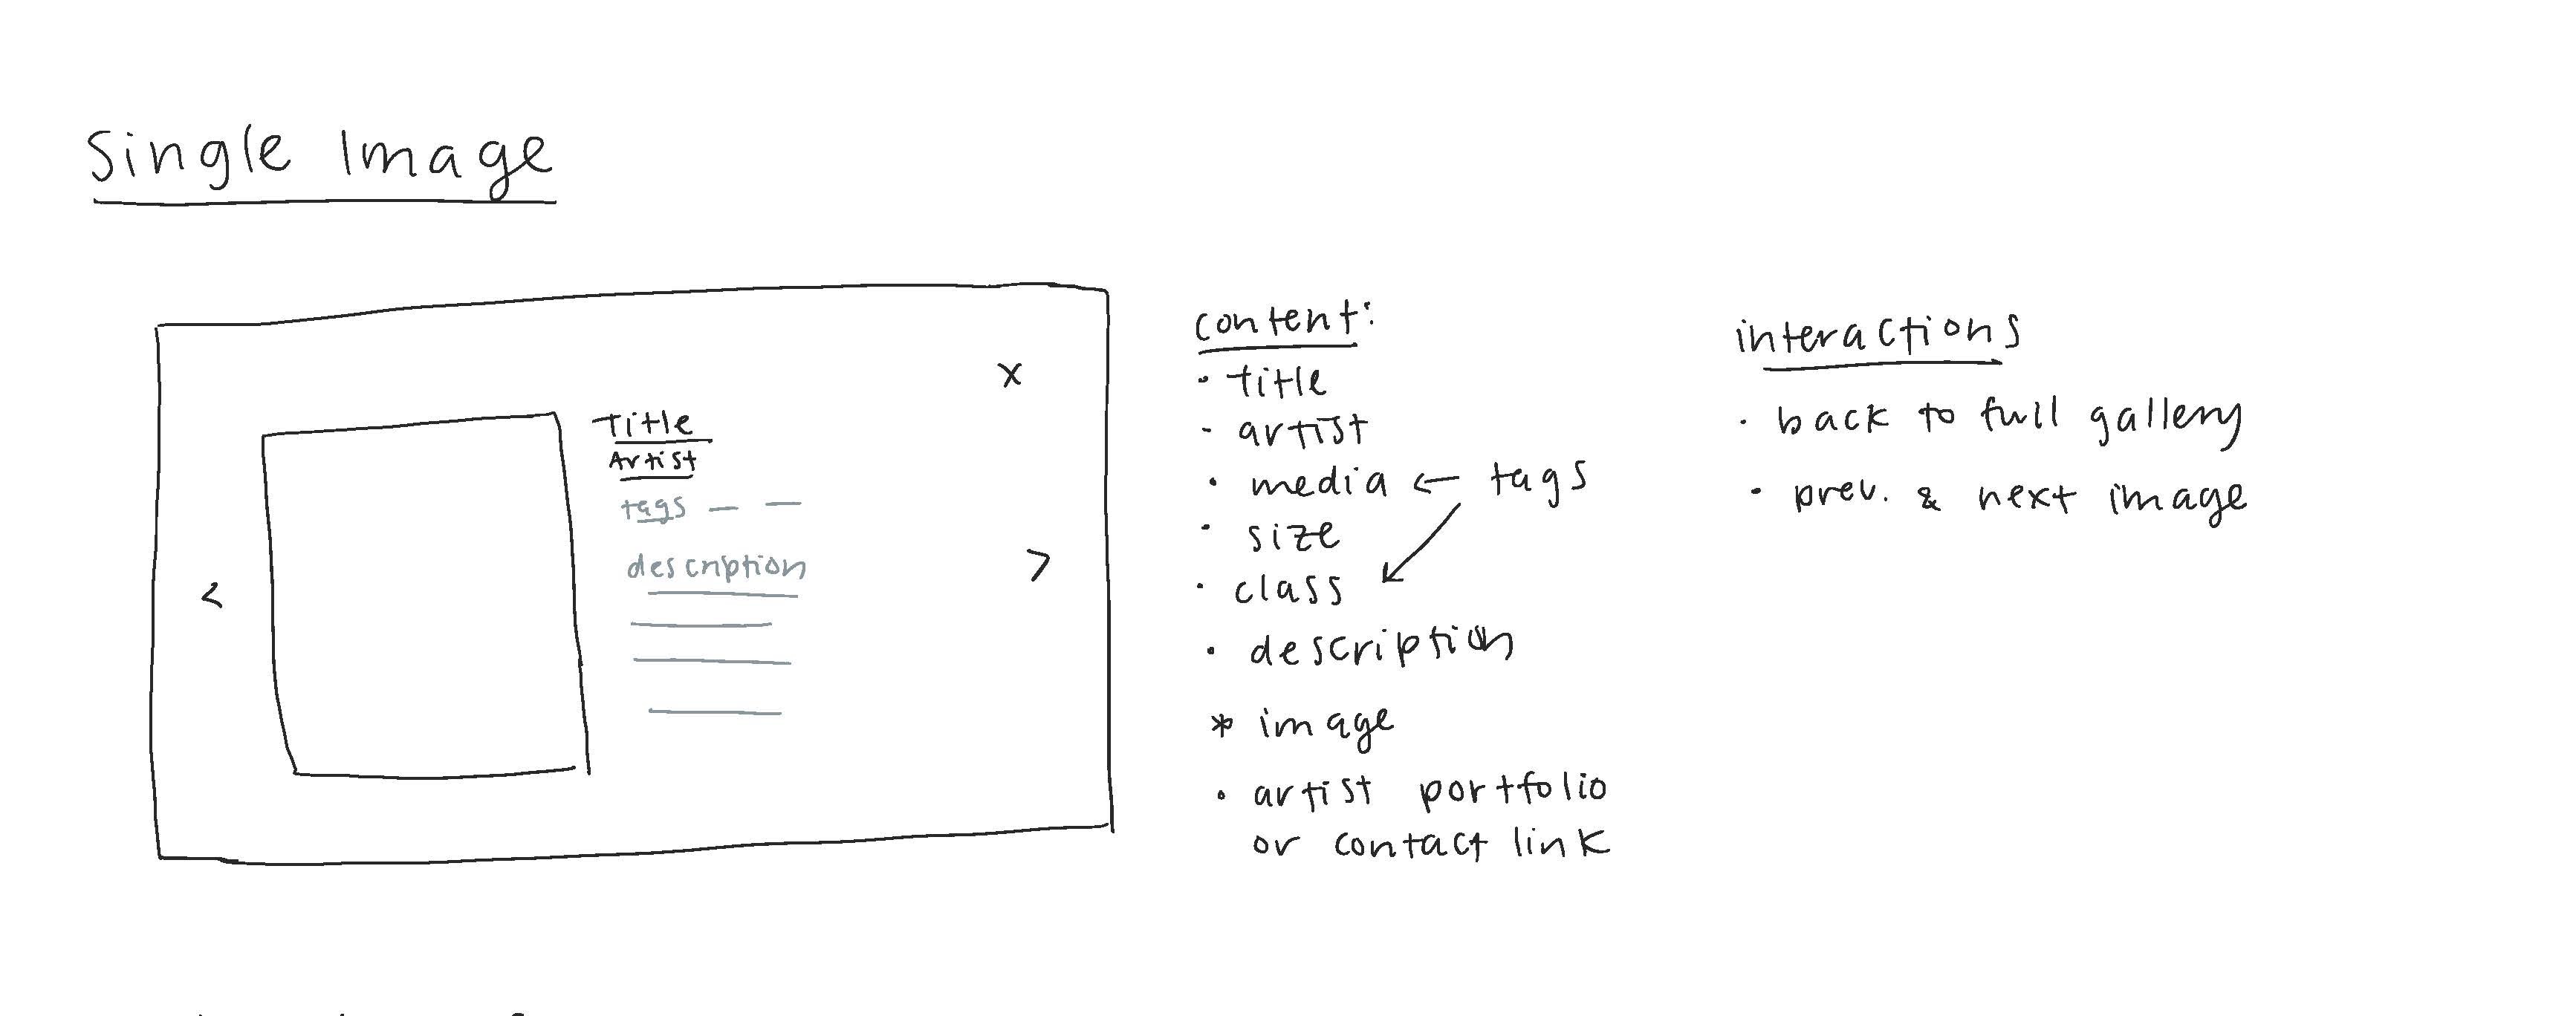 Single Image
x
Title
Artist
tags
description
<
>
content:
• title
- artist
• media ← tags
• size
• class
• description
* image
• artist portfolio
or contact link
interactions
• back to full gallery
• prev. & next image